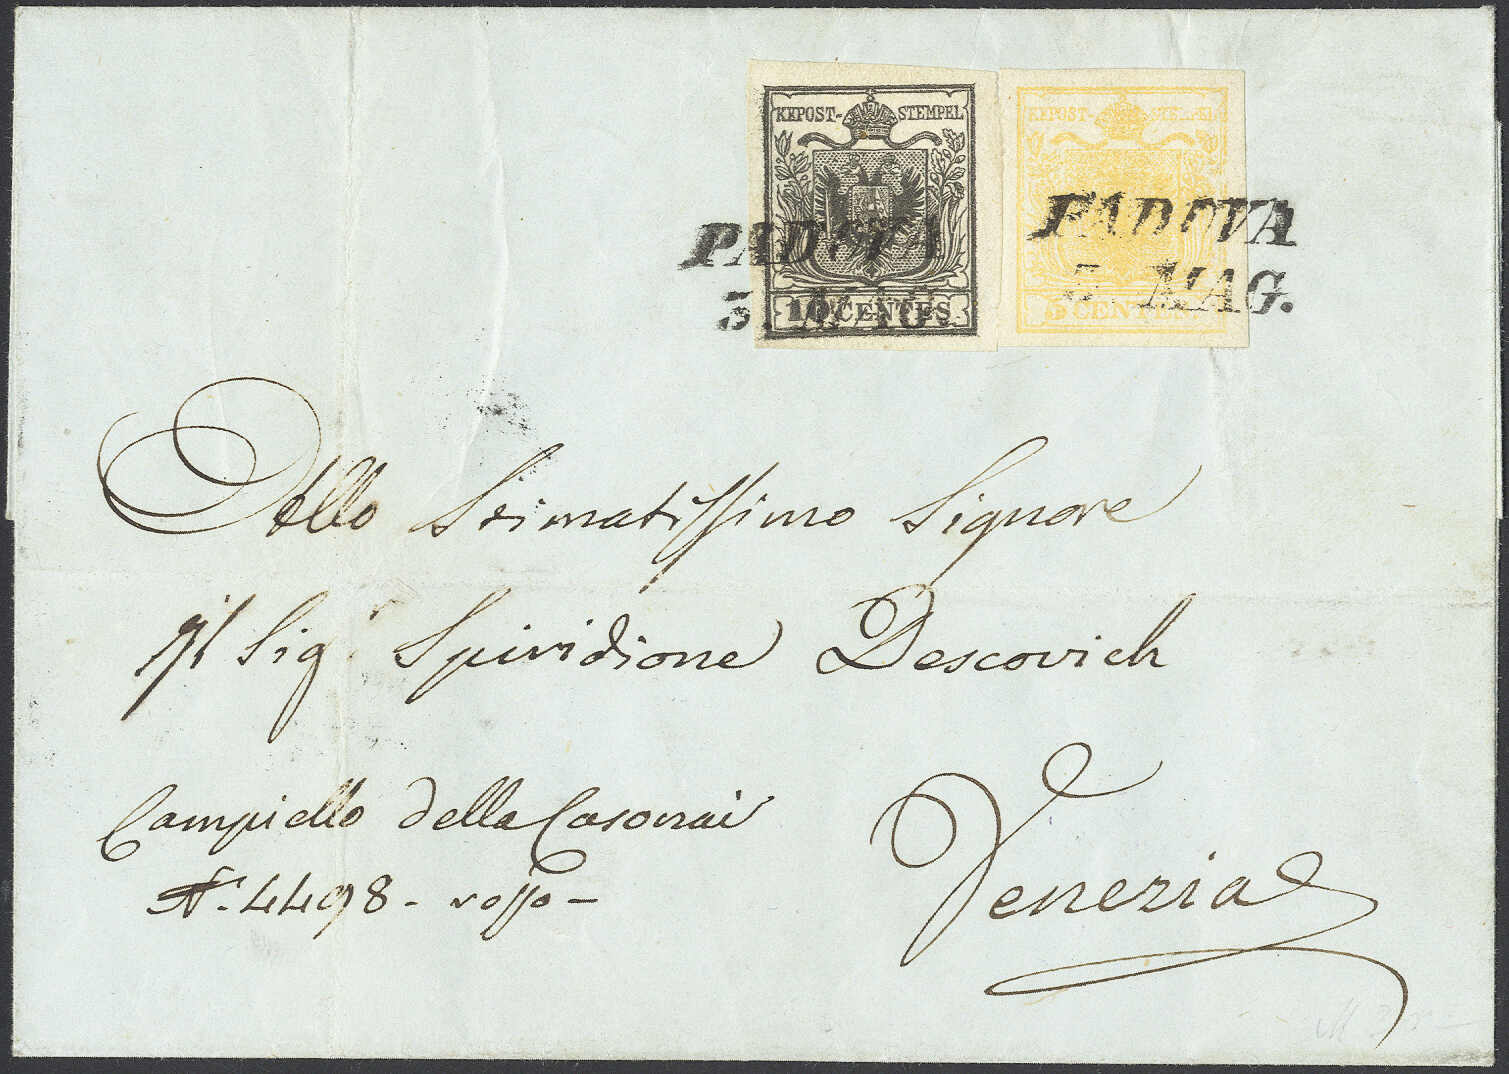 KKPOST- STEMPEL
10 CENTES
KKPOST- STEMPEL
5 CENTES
PADOVA
3. MAG.
PADOVA
3. MAG.
Dello Stimatissimo Signore
Sigr Spiridione Descovich
Campiello della Casonai
N. 4498. rosso-
Venezia